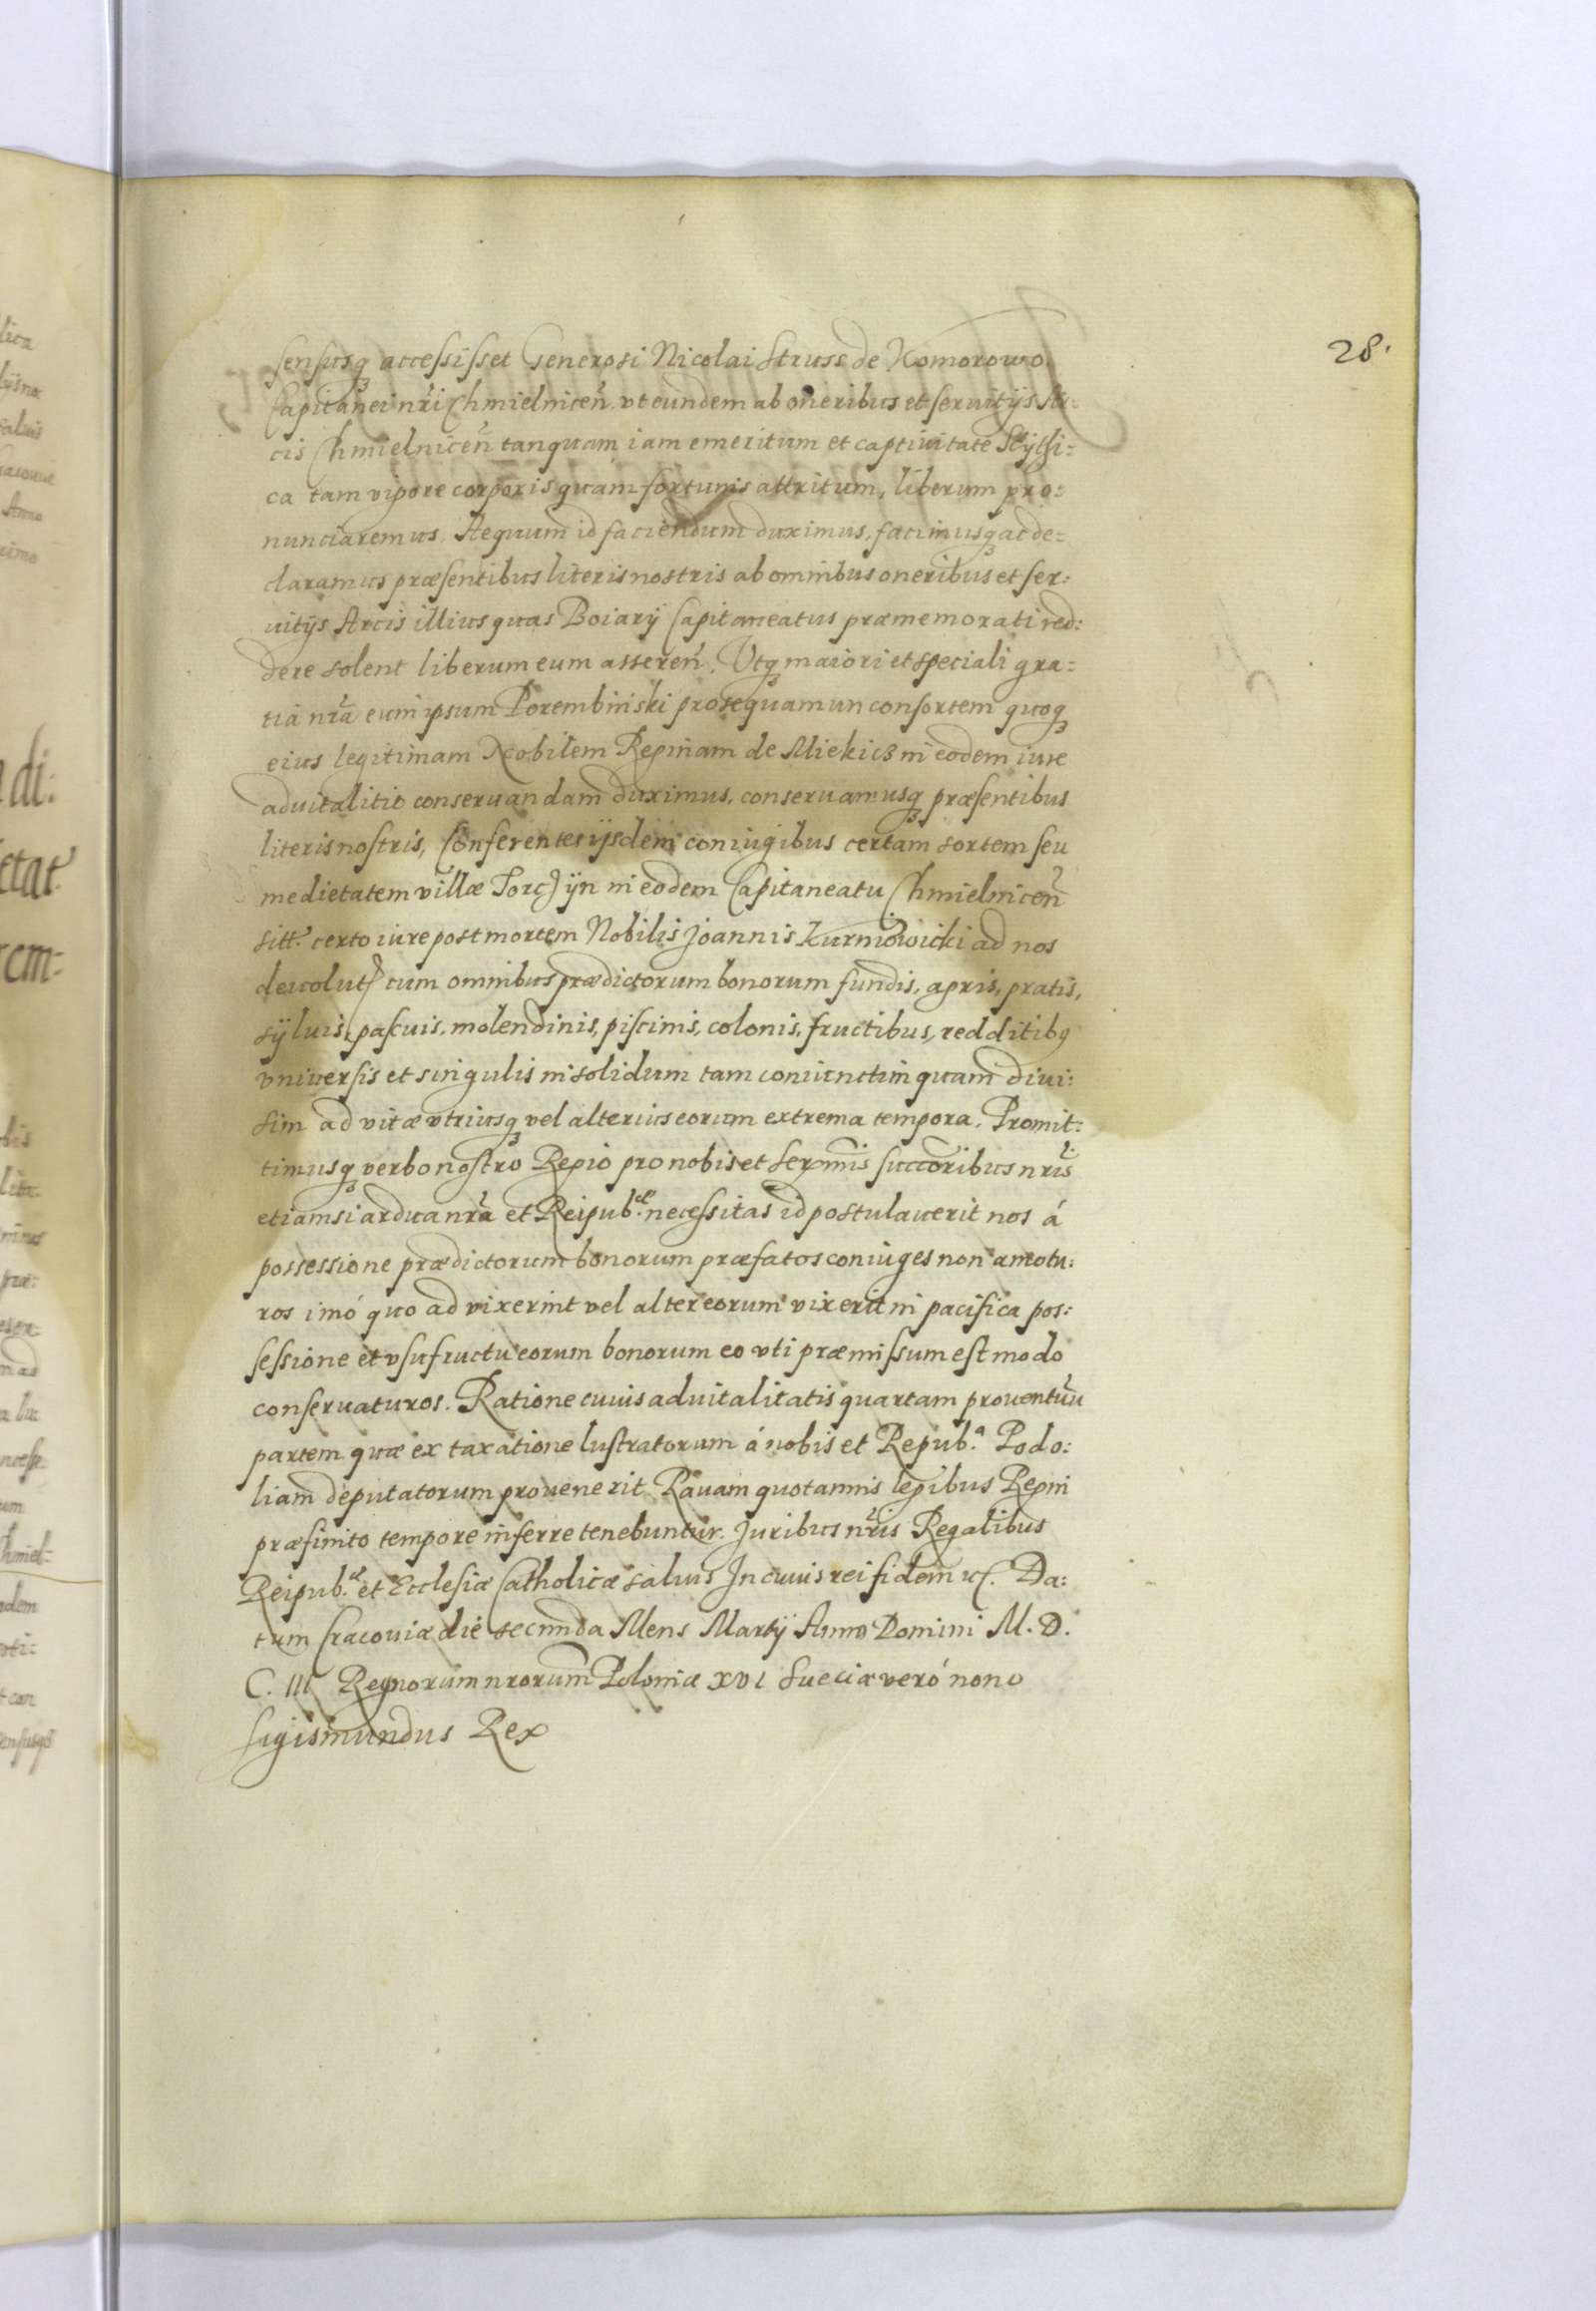 28.
sensusq accessisset Generosi Nicolai Struss de Komorowo
Capitanei nri Chmielnicen. vt eundem ab oneribus et seruitijs Ar:
cis Chmielnicen tanquam iam emeritum et captiuitate Scythi:
ca tam vigore corporis quam fortunis attritum, liberum pro:
nunciaremus. Aequum id faciendum duximus, facimusq ac de:
claramus præsentibus literis nostris ab omnibus oneribus et ser:
uitijs Arcis illius quas Boiarij Capitaneatus præmemorati red:
dere solent liberum eum asseren. Vtq maiori et speciali gra:
tia nra eum ipsum Porembinski prosequamur consortem quoq
eius legitimam Nobilem Reginam de Miekicz in eodem iure
aduitalitio conseruandam duximus, conseruamusq præsentibus
literis nostris, Conferentes ijsdem coniugibus certam sortem seu
medietatem villæ Torczijn in eodem Capitaneatu Chmielnicen
sitt. certo iure post mortem Nobilis Joannis Kurniowicki ad nos
deuolut cum omnibus prædictorum bonorum fundis, agris, pratis,
syluis, pascuis, molendinis, piscinis, colonis, fructibus, redditibq
vniuersis et singulis in solidum tam coniunctim quam diui:
sim ad vitæ vtriusq vel alterius eorum extrema tempora. Promit:
timusq verbo nostro Regio pro nobis et Sermis succoribus nris
etiamsi ardua nra et Reipub.æ necessitas id postulauerit nos á
possessione prædictorum bonorum præfatos coniuges non amotu:
ros imó quo ad vixerint vel alter eorum vixerit in pacifica pos:
sessione et vsufructu eorum bonorum eo vti præmissum est modo
conseruaturos. Ratione cuius aduitalitatis quartam prouentuu
partem quæ ex taxatione lustratorum á nobis et Repub.a Podo:
liam deputatorum prouenerit Rauam quotannis legibus Regni
præfinito tempore inferre tenebuntur. Juribus nris Regalibus
Reipub.æ et Ecclesiæ Catholicæ saluis In cuius rei fidem &c. Da:
tum Cracouiæ die secunda Mens Martij Anno Domini M. D.
C. III Regnorum nrorum Poloniæ XVI Sueciæ veró nono
Sigismundus Rex